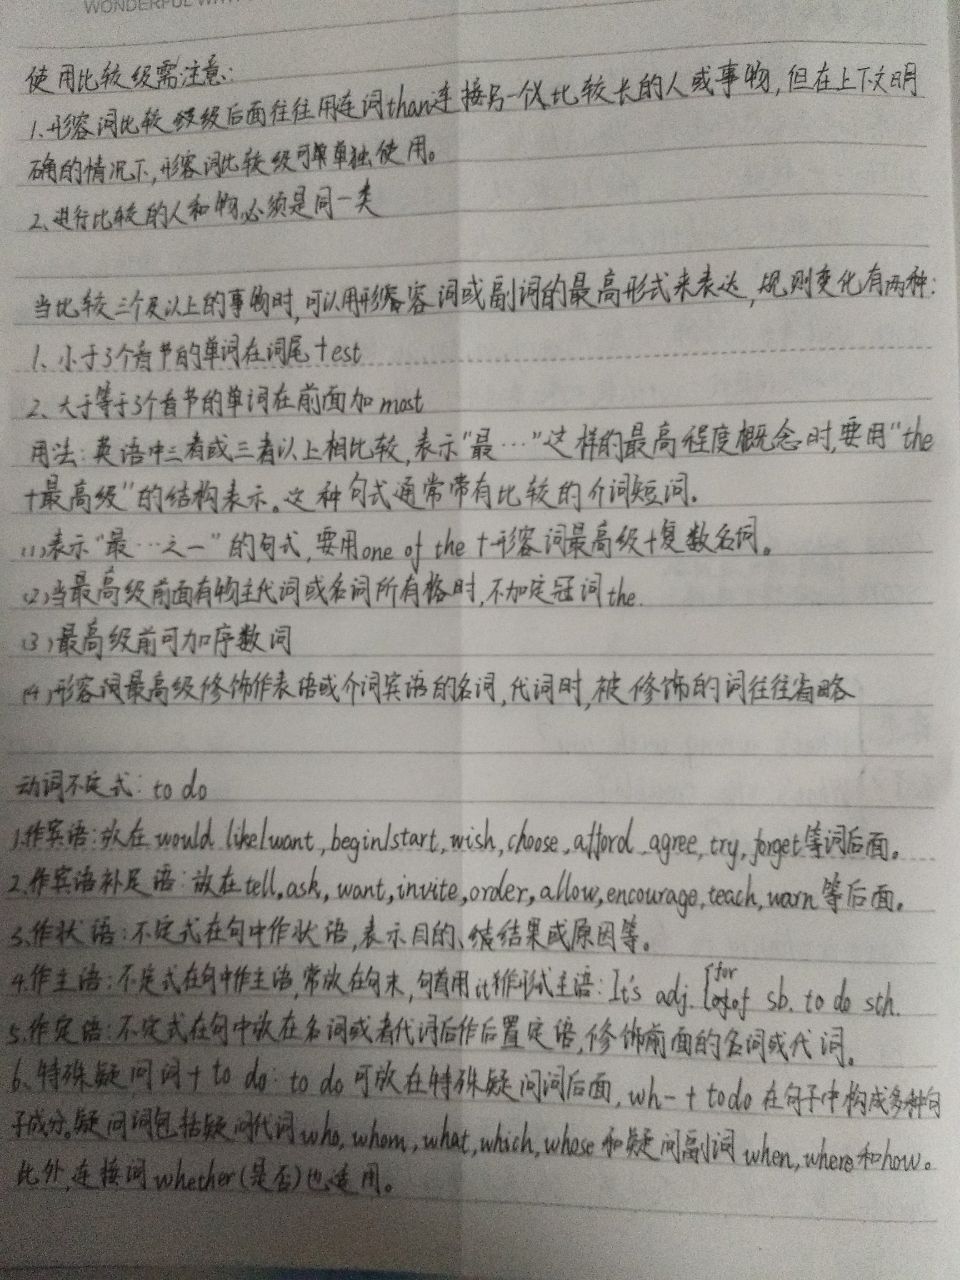 WONDERFUL
使用比较级需注意:
1.形容词比较级后面往往用连词than连接另一仅比较长的人或事物,但在上下文明
确的情况下,形容词比较级可单独使用。
2.进行比较的人和物必须是同一类
当比较三个及以上的事物时,可以用形容词或副词的最高形式来表达,规则变化有两种:
1、小于3个音节的单词在词尾+est
2、大于等于3个音节的单词在前面加most
用法:英语中三者或三者以上相比较,表示"最…"这样的最高程度概念时,要用"the
+最高级"的结构表示。这种句式通常带有比较的介词短词.
(1)表示"最…之一"的句式,要用one of the +形容词最高级+复数名词。
(2)当最高级前面有物主代词或名词所有格时,不加定冠词the.
(3)最高级前可加序数词
(4)形容词最高级修饰作表语或介词宾语的名词,代词时,被修饰的词往往省略
动词不定式: to do
1.作宾语:放在would like/want,begin/start,wish,choose,afford,agree,try,forget等词后面。
2.作宾语补足语:放在tell,ask,want,invite,order,allow,encourage,teach,warn等后面。
3.作状语:不定式在句中作状语,表示目的、结果或原因等。
4.作主语:不定式在句中作主语,常放在句末,句首用it作形式主语:It's adj. {for
of sb. to do sth.
5.作定语:不定式在句中放在名词或者代词后作后置定语,修饰前面的名词或代词。
6.特殊疑问词+to do: to do可放在特殊疑问词后面,wh-+to do在句子中构成多种句
子成分。疑问词包括疑问代词who,whom,what,which,whose和疑问副词when,where和how。
此外,连接词whether(是否)也适用。